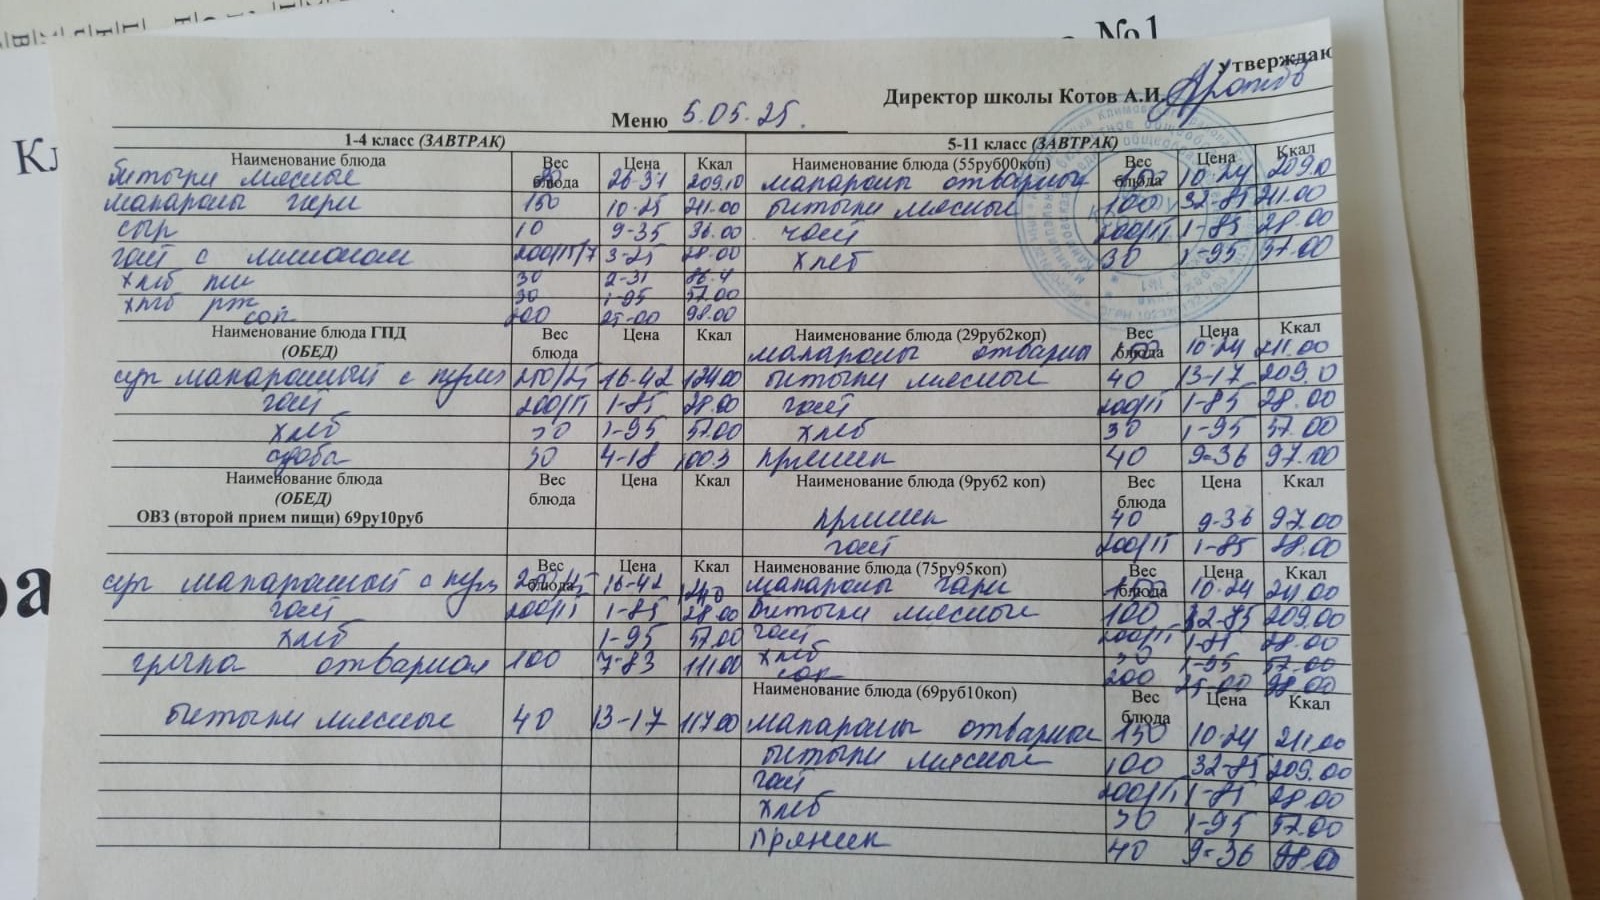 №1
Утверждаю
Директор школы Котов А.И.
Меню 5.05.25.
1-4 класс (ЗАВТРАК)
Наименование блюда Вес блюда Цена Ккал
биточки мясные 26-31 209.10
макароны гарн 150 10-25 211.00
сыр 10 9-35 36.00
чай с лимоном 200/15/7 3-25 28.00
хлеб пш 30 2-31
хлеб рж 30 1-95 57.00
сок 200 25-00 98.00
Наименование блюда ГПД (ОБЕД) Вес блюда Цена Ккал
суп макаронный с кури 250/25 16-42 124.00
чай 200/15 1-85 28.00
хлеб 30 1-95 57.00
сдоба 50 4-18 100.3
Наименование блюда (ОБЕД) Вес блюда Цена Ккал
ОВЗ (второй прием пищи) 69ру10руб
Вес блюда Цена Ккал
суп макаронный с кури 16-42
чай 200/15 1-85 28.00
хлеб 1-95 57.00
гречка отварная 100 7-83 111.00
биточки мясные 40 13-17 117.00
5-11 класс (ЗАВТРАК)
Наименование блюда (55руб00коп) Вес блюда Цена Ккал
макароны отварные 150 10-24 209.10
биточки мясные 100 32-85 211.00
чай 200/15 1-85 28.00
хлеб 30 1-95 57.00
Наименование блюда (29руб2коп) Вес блюда Цена Ккал
макароны отварны 10-24 211.00
биточки мясные 40 13-17 209.0
чай 200/15 1-85 28.00
хлеб 30 1-95 57.00
пряник 40 9-36 97.00
Наименование блюда (9руб2 коп) Вес блюда Цена Ккал
пряник 40 9-36 97.00
чай 200/15 1-85 28.00
Наименование блюда (75ру95коп) Вес блюда Цена Ккал
макароны гарн 150 10-24 211.00
биточки мясные 100 32-85 209.00
чай 200/15 1-85 28.00
хлеб 30 1-95 57.00
сок 200 25-00 98.00
Наименование блюда (69руб10коп) Вес блюда Цена Ккал
макароны отварные 150 10-24 211.00
биточки мясные 100 32-85 209.00
чай 200/15 1-85 28.00
хлеб 30 1-95 57.00
пряник 40 9-36 98.00